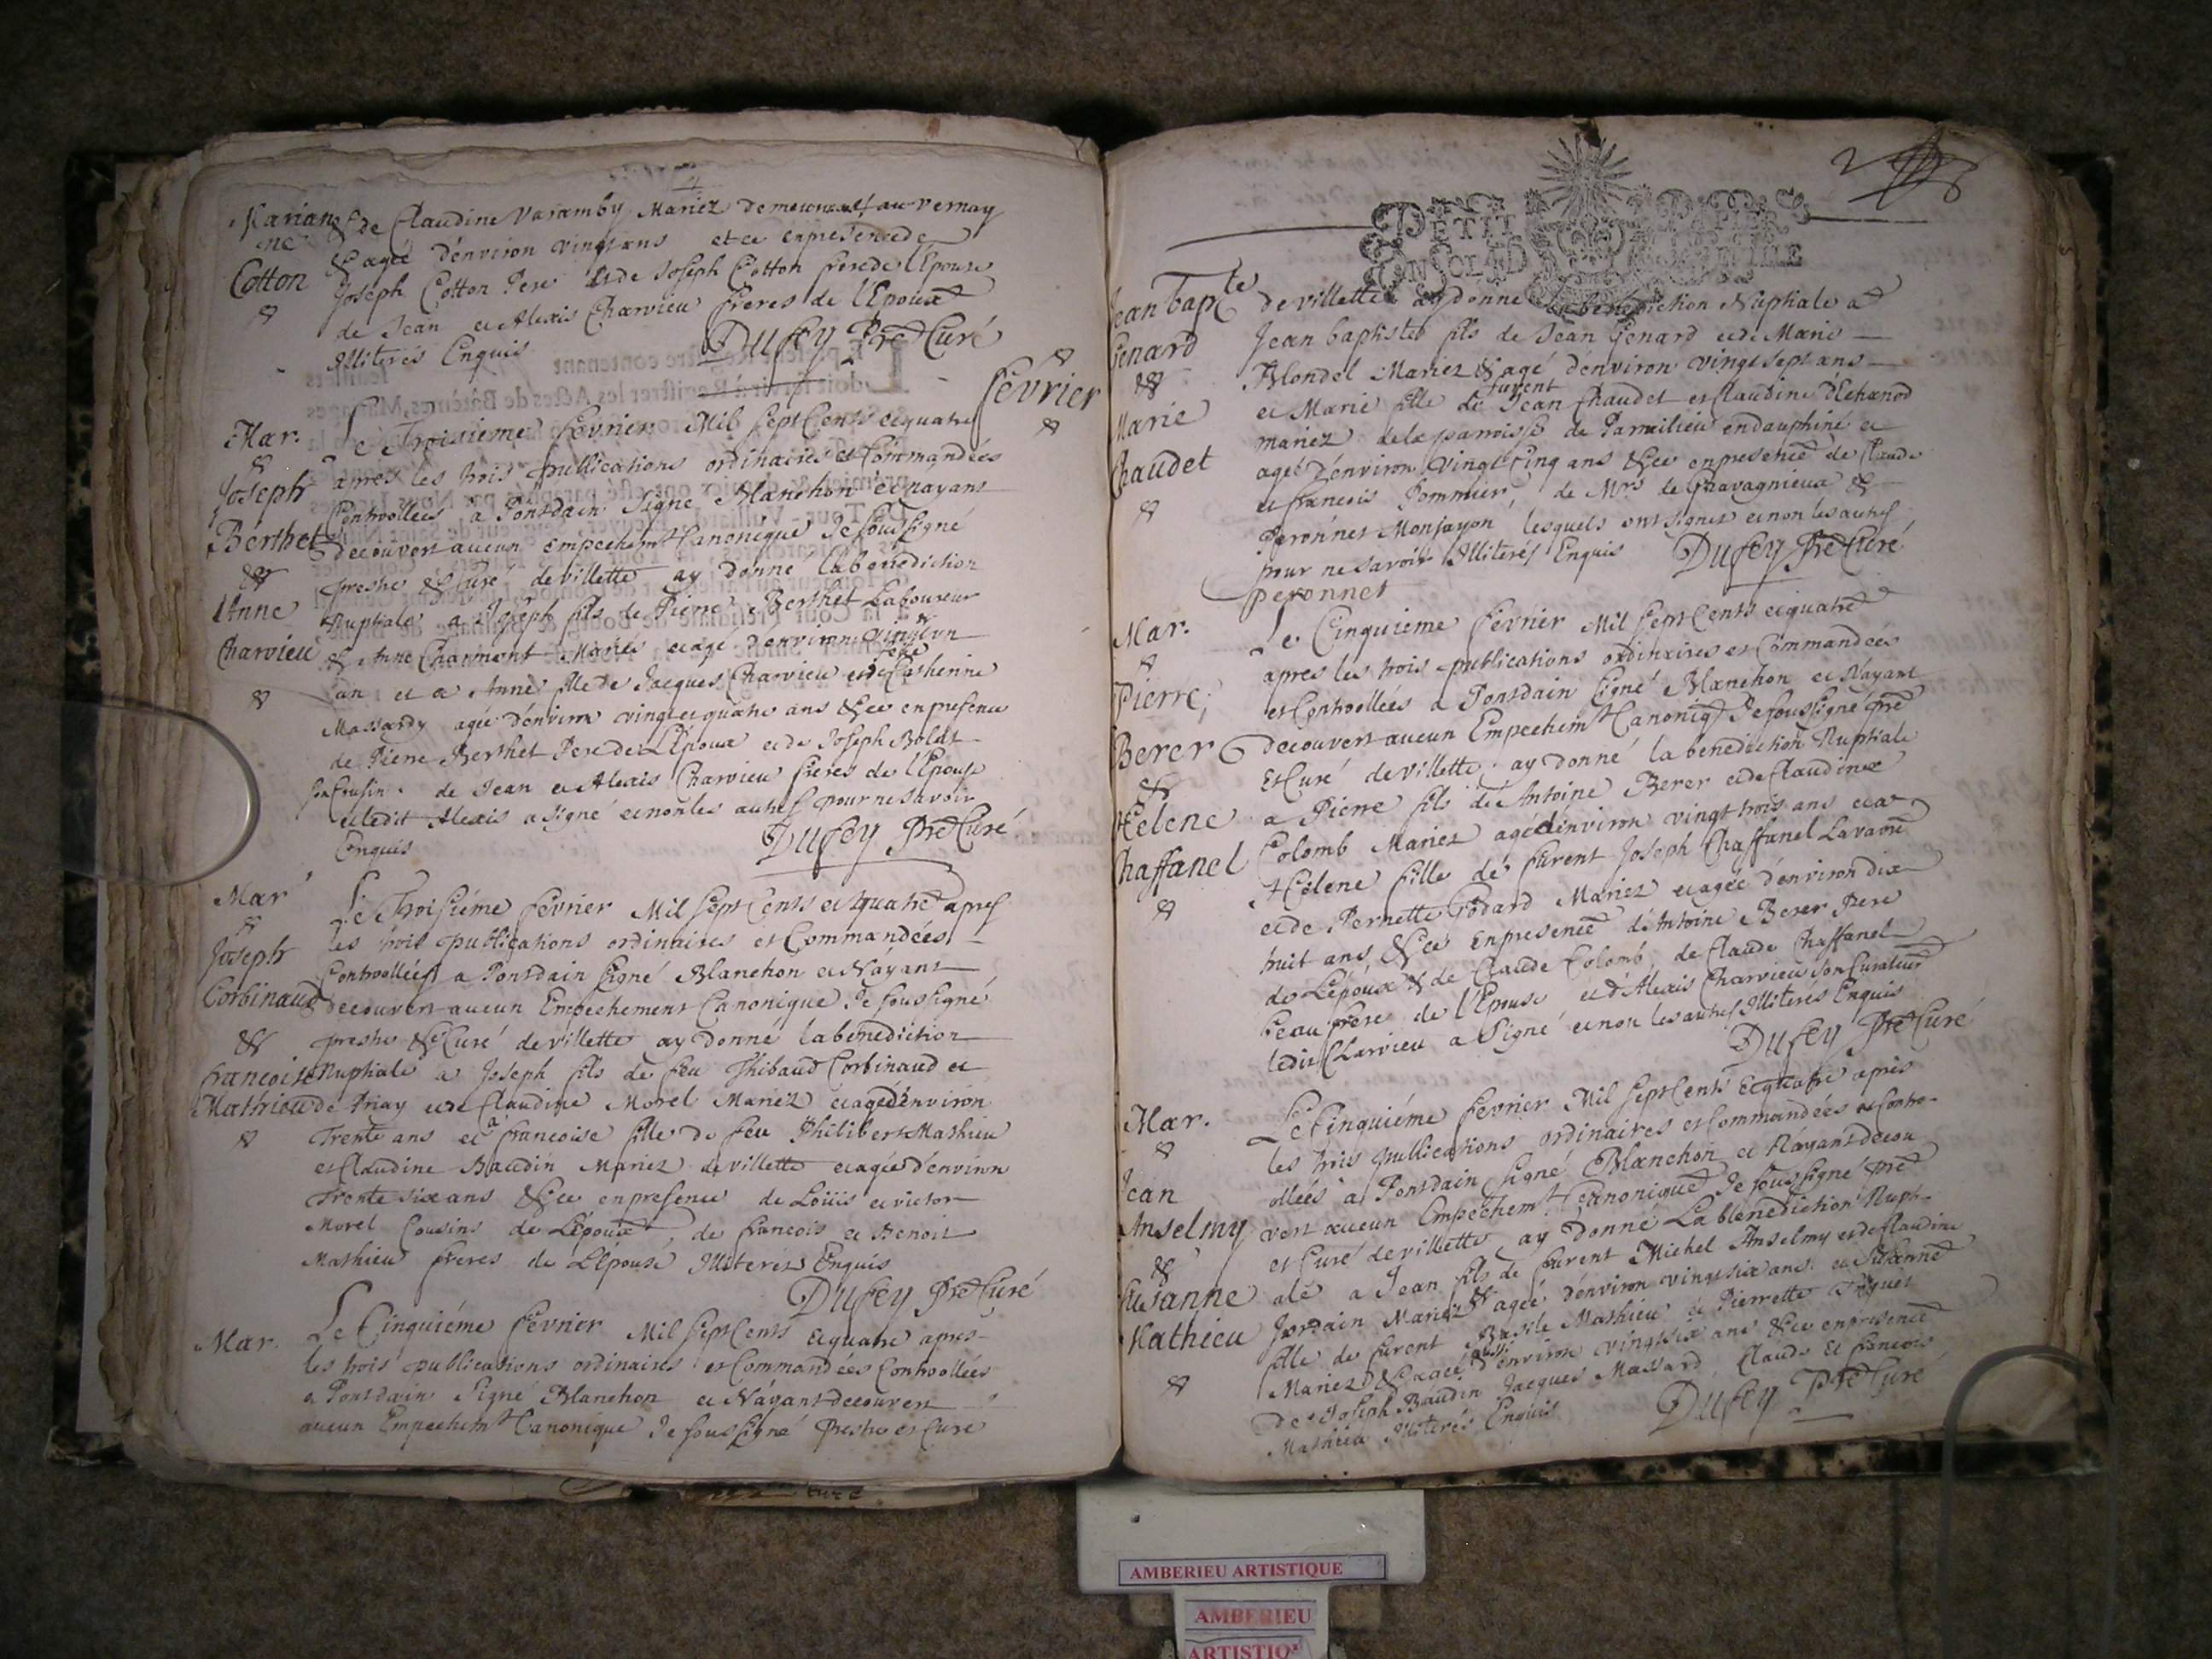 Marian
ne
Cotton
&
& de Claudine Varamby Mariez demeurant au vernay
& agée d'environ vingt ans et ce en présence de
Joseph Cotton Pere & de Joseph Cotton frere de l'Epouse
de Jean et Alexis Charvieu freres de l'Epoux
Illiterés Enquis
Dufey Pre Curé
février
Mar.
Joseph
Berthet
&
Anne
Charvieu
Le Troisieme février Mil sept Cents et quatre
apres les trois publications ordinaires et Commandées
Controollées a Pontdain signé Blanchon et nayant
decouvert aucun empechemt Canonique Je soussigné
prestre & Curé de villette ay donné la benediction
Nuptiale a Joseph fils de Pierre Berthet Laboureur
& Anne Charmont Mariés et agé d'environ vingt un
an et a Anne fille de Jacques Charvieu et de Catherine
Massardy agée d'environ vingt et quatre ans & ce en presence
de Pierre Berthet Pere de L'Epoux et de Joseph Bolet
son Cousin de Jean et Alexis Charvieu freres de l'Epouse
et ledit Alexis a signé et non les autres pour ne savoir
Enquis
Dufey Pre Curé
Mar
Joseph
Corbinaud
&
francoise
Mathieu
Le Troisiéme février Mil sept Cents et quatre apres
les trois publications ordinaires et Commandées
Controollées a Pontdain signé Blanchon et Náyant
decouvert aucun Empechement Canonique Je soussigné
prestre & Curé de villette ay donné la benediction
Nuptiale a Joseph fils de feu Thibaud Corbinaud et
de Priay et de Claudine Morel Mariez et agé d'environ
Trente ans et a francoise fille de feu Philibert Mathieu
et Claudine Baudin Mariez de villette et agée d'environ
Trente six ans & ce en presence de Loüis et victor
Morel Cousins de L'époux, de francois et Benoit
Mathieu freres de L'Epouse Illiterés Enquis
Dufey Pre Curé
Mar.
Le Cinquiéme février Mil sept Cents et quatre apres
les trois publications ordinaires et Commandées Controollées
a Pontdain signé Blanchon et Náyant decouvert
aucun Empechemt Canonique Je soussigné Prestre et Curé
2
PETIT PAPIER
Jean bapte
Genard
&
Marie
Chaudet
de villette ay donné la benediction Nuptiale a
Jean baptiste fils de Jean Genard et de Marie
Blondel Mariez & agé d'environ vingt sept ans
et Marie fille de furent Jean Chaudet et Claudine d'Echanod
mariez de la parroisse de Parmilieu en dauphiné et
agée d'environ vingt Cinq ans & ce en presence de Claude
et francois Pommier, de Mrs de Gravagnieux &
Peronnet Monjayon lesquels ont signez et non les autres
pour ne savoir Illiterés Enquis
peronnet
Dufey Pre Curé
Mar.
Pierre
Berer
&
Helene
Chaffanel
Le Cinquiéme février Mil sept Cents et quatre
apres les trois publications ordinaires et Commandées
et Controollées a Pontdain signé Blanchon et Nayant
decouvert aucun Empechemt Canoniq Je soussigné pre
Et Curé de villette ay donné la benediction Nuptiale
a Pierre fils de Antoine Berer et de Claudine
Colomb Mariez agé d'environ vingt trois ans et a
Hélene fille de furent Joseph Chaffanel
et de Pernette Godard Mariez et agée d'environ dix
huit ans & ce En presence d'Antoine Berer Pere
de L'époux & de Claude Colomb, de Claude Chaffanel
beau frere de l'Epouse et d'Alexis Charvieu son Curateur
ledit Charvieu a signé et non les autres Illiterés Enquis
Dufey Pre Curé
Mar.
Jean
Anselmy
&
Susanne
Mathieu
Le Cinquiéme février Mil sept Cents Et quatre apres
les trois publications ordinaires et Commandées et Contro-
ollées a Pontdain signé Blanchon et Náyant decou
vert aucun Empechemt Canonique Je soussigné pre
et Curé de villette ay donné La benediction Nupti-
ale a Jean fils de furent Michel Anselmy et de Claudine
Jordain Mariez & agé d'environ vingt six ans et Susanne
fille de furent Basile Mathieu et Pierrette
Mariez & agée aussi d'environ vingt six ans & ce en presence
de Joseph Baudin Jacques Massard Claude Et francois
Mathieu Illiterés Enquis
Dufey Pre Curé
AMBERIEU ARTISTIQUE
AMBERIEU
ARTISTIQ